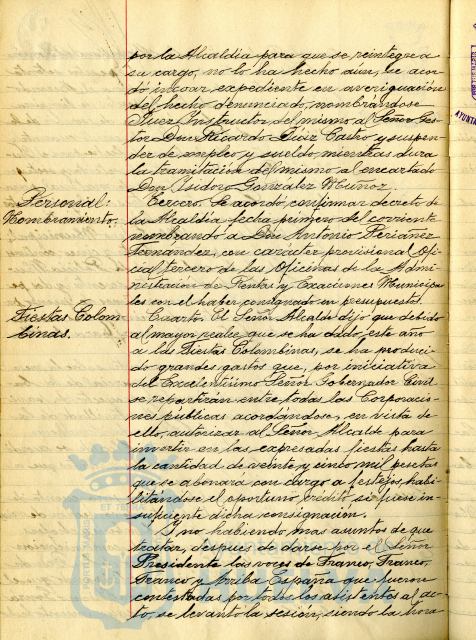 por la Alcaldía para que se reintegre a
su cargo, no lo ha hecho aún, se acor
dó incoar expediente en averiguación
del hecho denunciado, nombrándose
Juez Instructor del mismo al Señor Ges-
tor Don Ricardo Díaz Castro y suspen-
der de empleo y sueldo mientras dura
la tramitación del mismo al encartado
Don Isidoro González Muñoz.
Personal:
Nombramiento.
Tercero. Se acordó, confirmar decreto de
la Alcaldía fecha primero del corriente
nombrando a Don Antonio Periáñez
Fernández, con carácter provisional Ofi-
cial tercero de las Oficinas de la Admi-
nistración de Rentas y Exacciones Municipa-
les con el haber consignado en presupuesto.
Fiestas Colom-
binas.
Cuarto. El Señor Alcalde dijo que debido
al mayor realce que se ha dado este año
a las Fiestas Colombinas, se ha produci-
do grandes gastos que, por iniciativa
del Excelentísimo Señor Gobernador Civil
se repartirán entre todas las Corporacio-
nes públicas acordándose, en vista de
ello, autorizar al Señor Alcalde para
invertir en las expresadas fiestas hasta
la cantidad de veinte y cinco mil pesetas
que se abonará con cargo a festejos, habi-
litándose el oportuno crédito si fuese in-
suficiente dicha consignación.
Y no habiendo mas asuntos de que
tratar, despues de darse por el Señor
Presidente las voces de Franco, Franco,
Franco y Arriba España que fueron
contestadas por todos los asistentes al ac-
to, se levantó la sesión, siendo la hora
AYUNTA